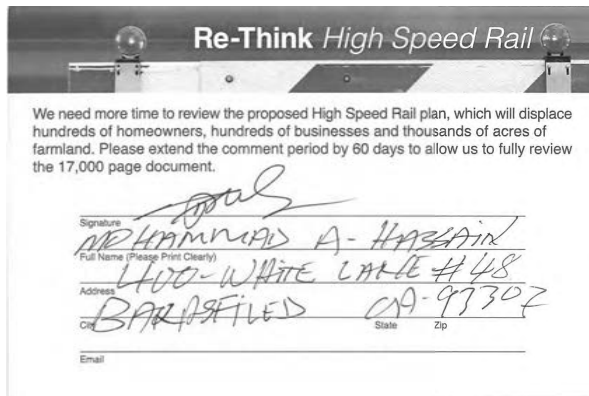 Re-Think High Speed Rail
We need more time to review the proposed High Speed Rail plan, which will displace
hundreds of homeowners, hundreds of businesses and thousands of acres of
farmland. Please extend the comment period by 60 days to allow us to fully review
the 17,000 page document.
Signature
MOHAMMAD A- HASSAIN
Full Name (Please Print Clearly)
400-WHITE LAKE #48
Address
BARASFILED CA-93307
City State Zip
Email